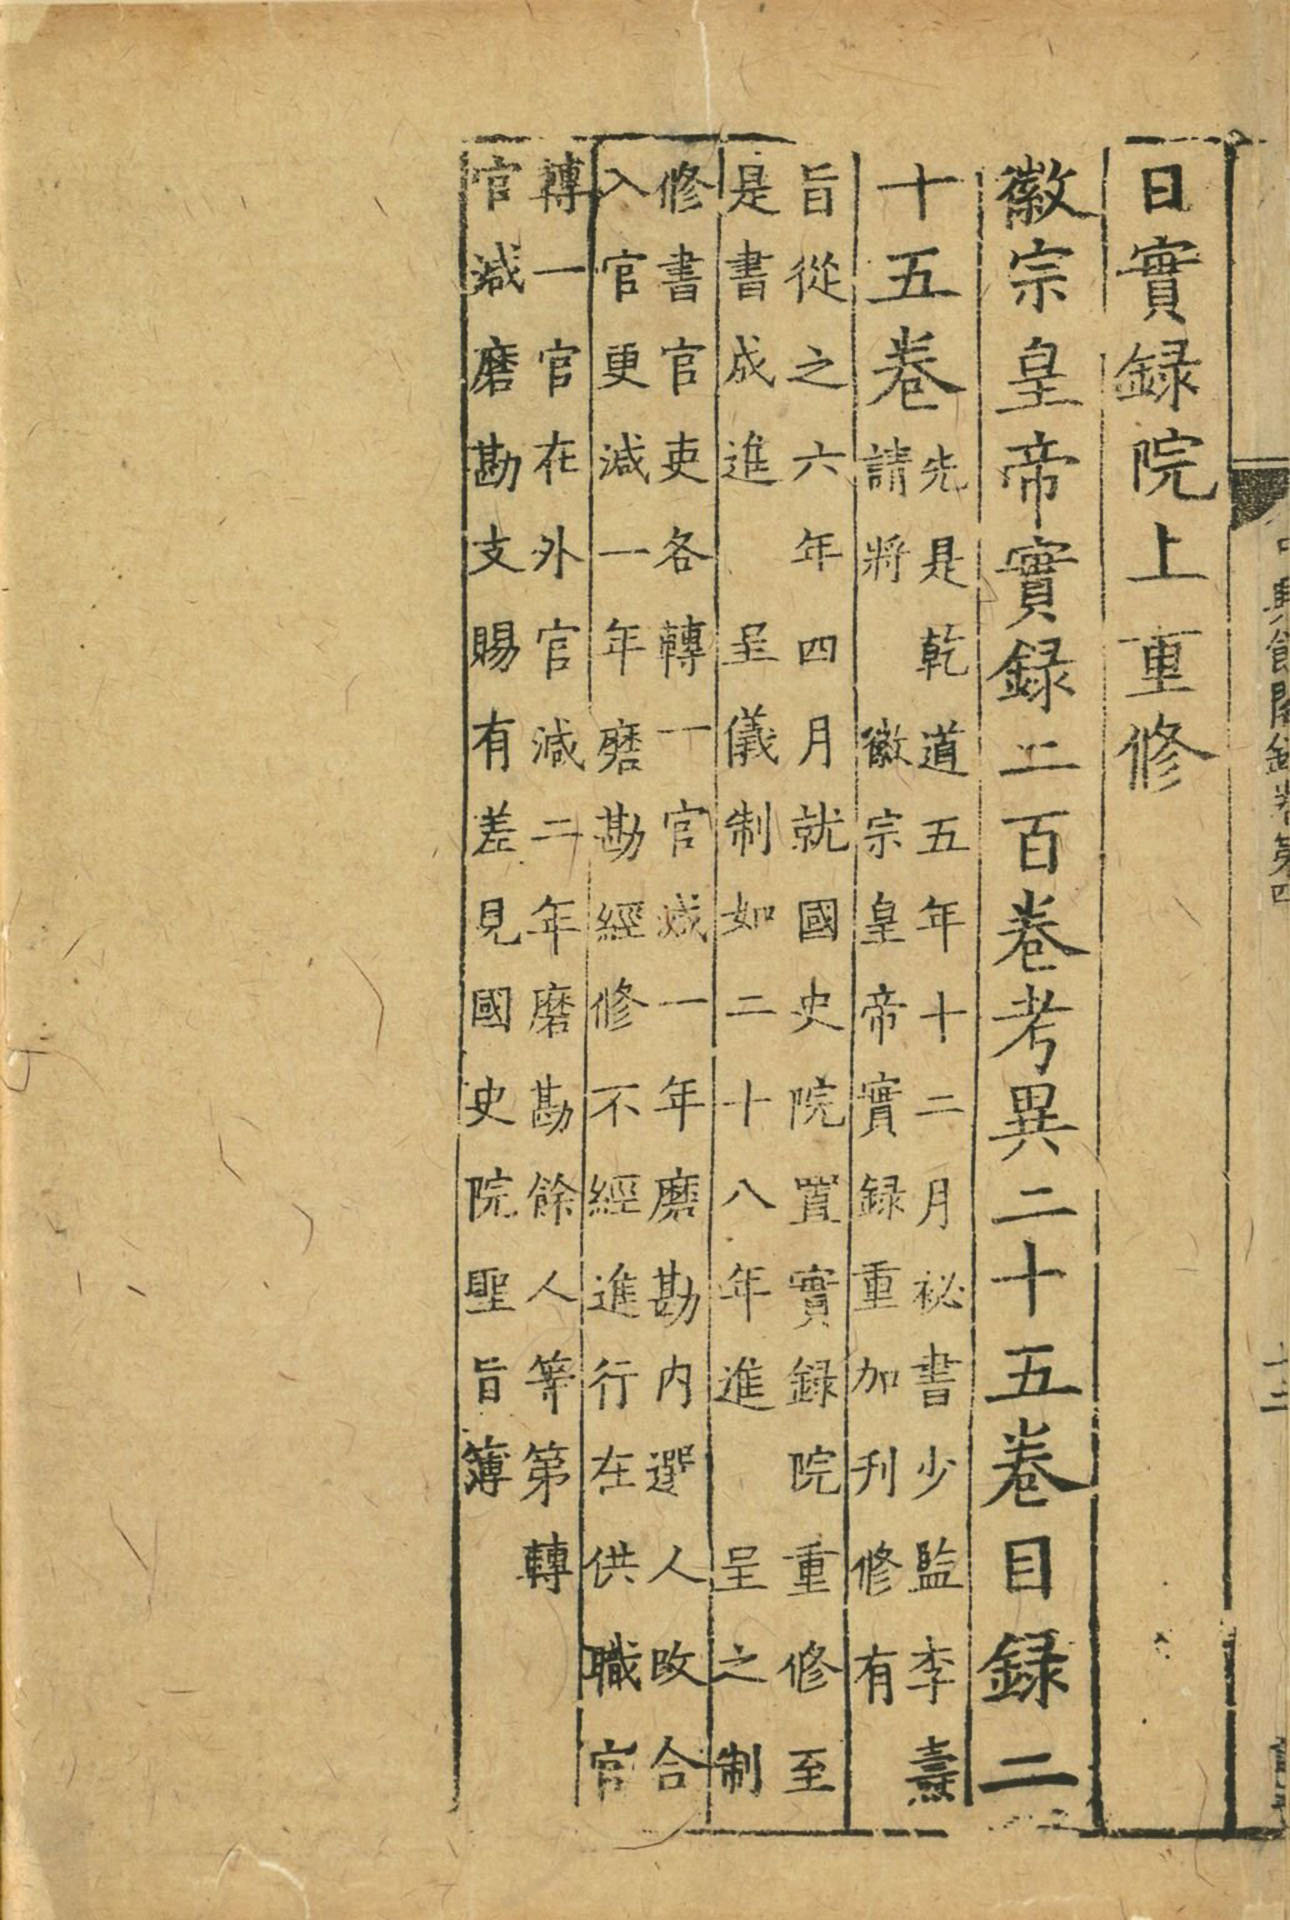 中興館閣録卷第四
十二
日實録院上重修
徽宗皇帝實録二百卷考異二十五卷目録二
十五卷
先是乾道五年十二月祕書少監李燾
請將徽宗皇帝實録重加刋修有
旨從之六年四月就國史院置實録院重修至
是書成進呈儀制如二十八年進呈之制
修書官吏各轉一官减一年磨勘内選人改合
入官更減一年磨勘經修不經進行在供職官
轉一官在外官減二年磨勘餘人等第轉
官減磨勘支賜有差見國史院聖旨簿